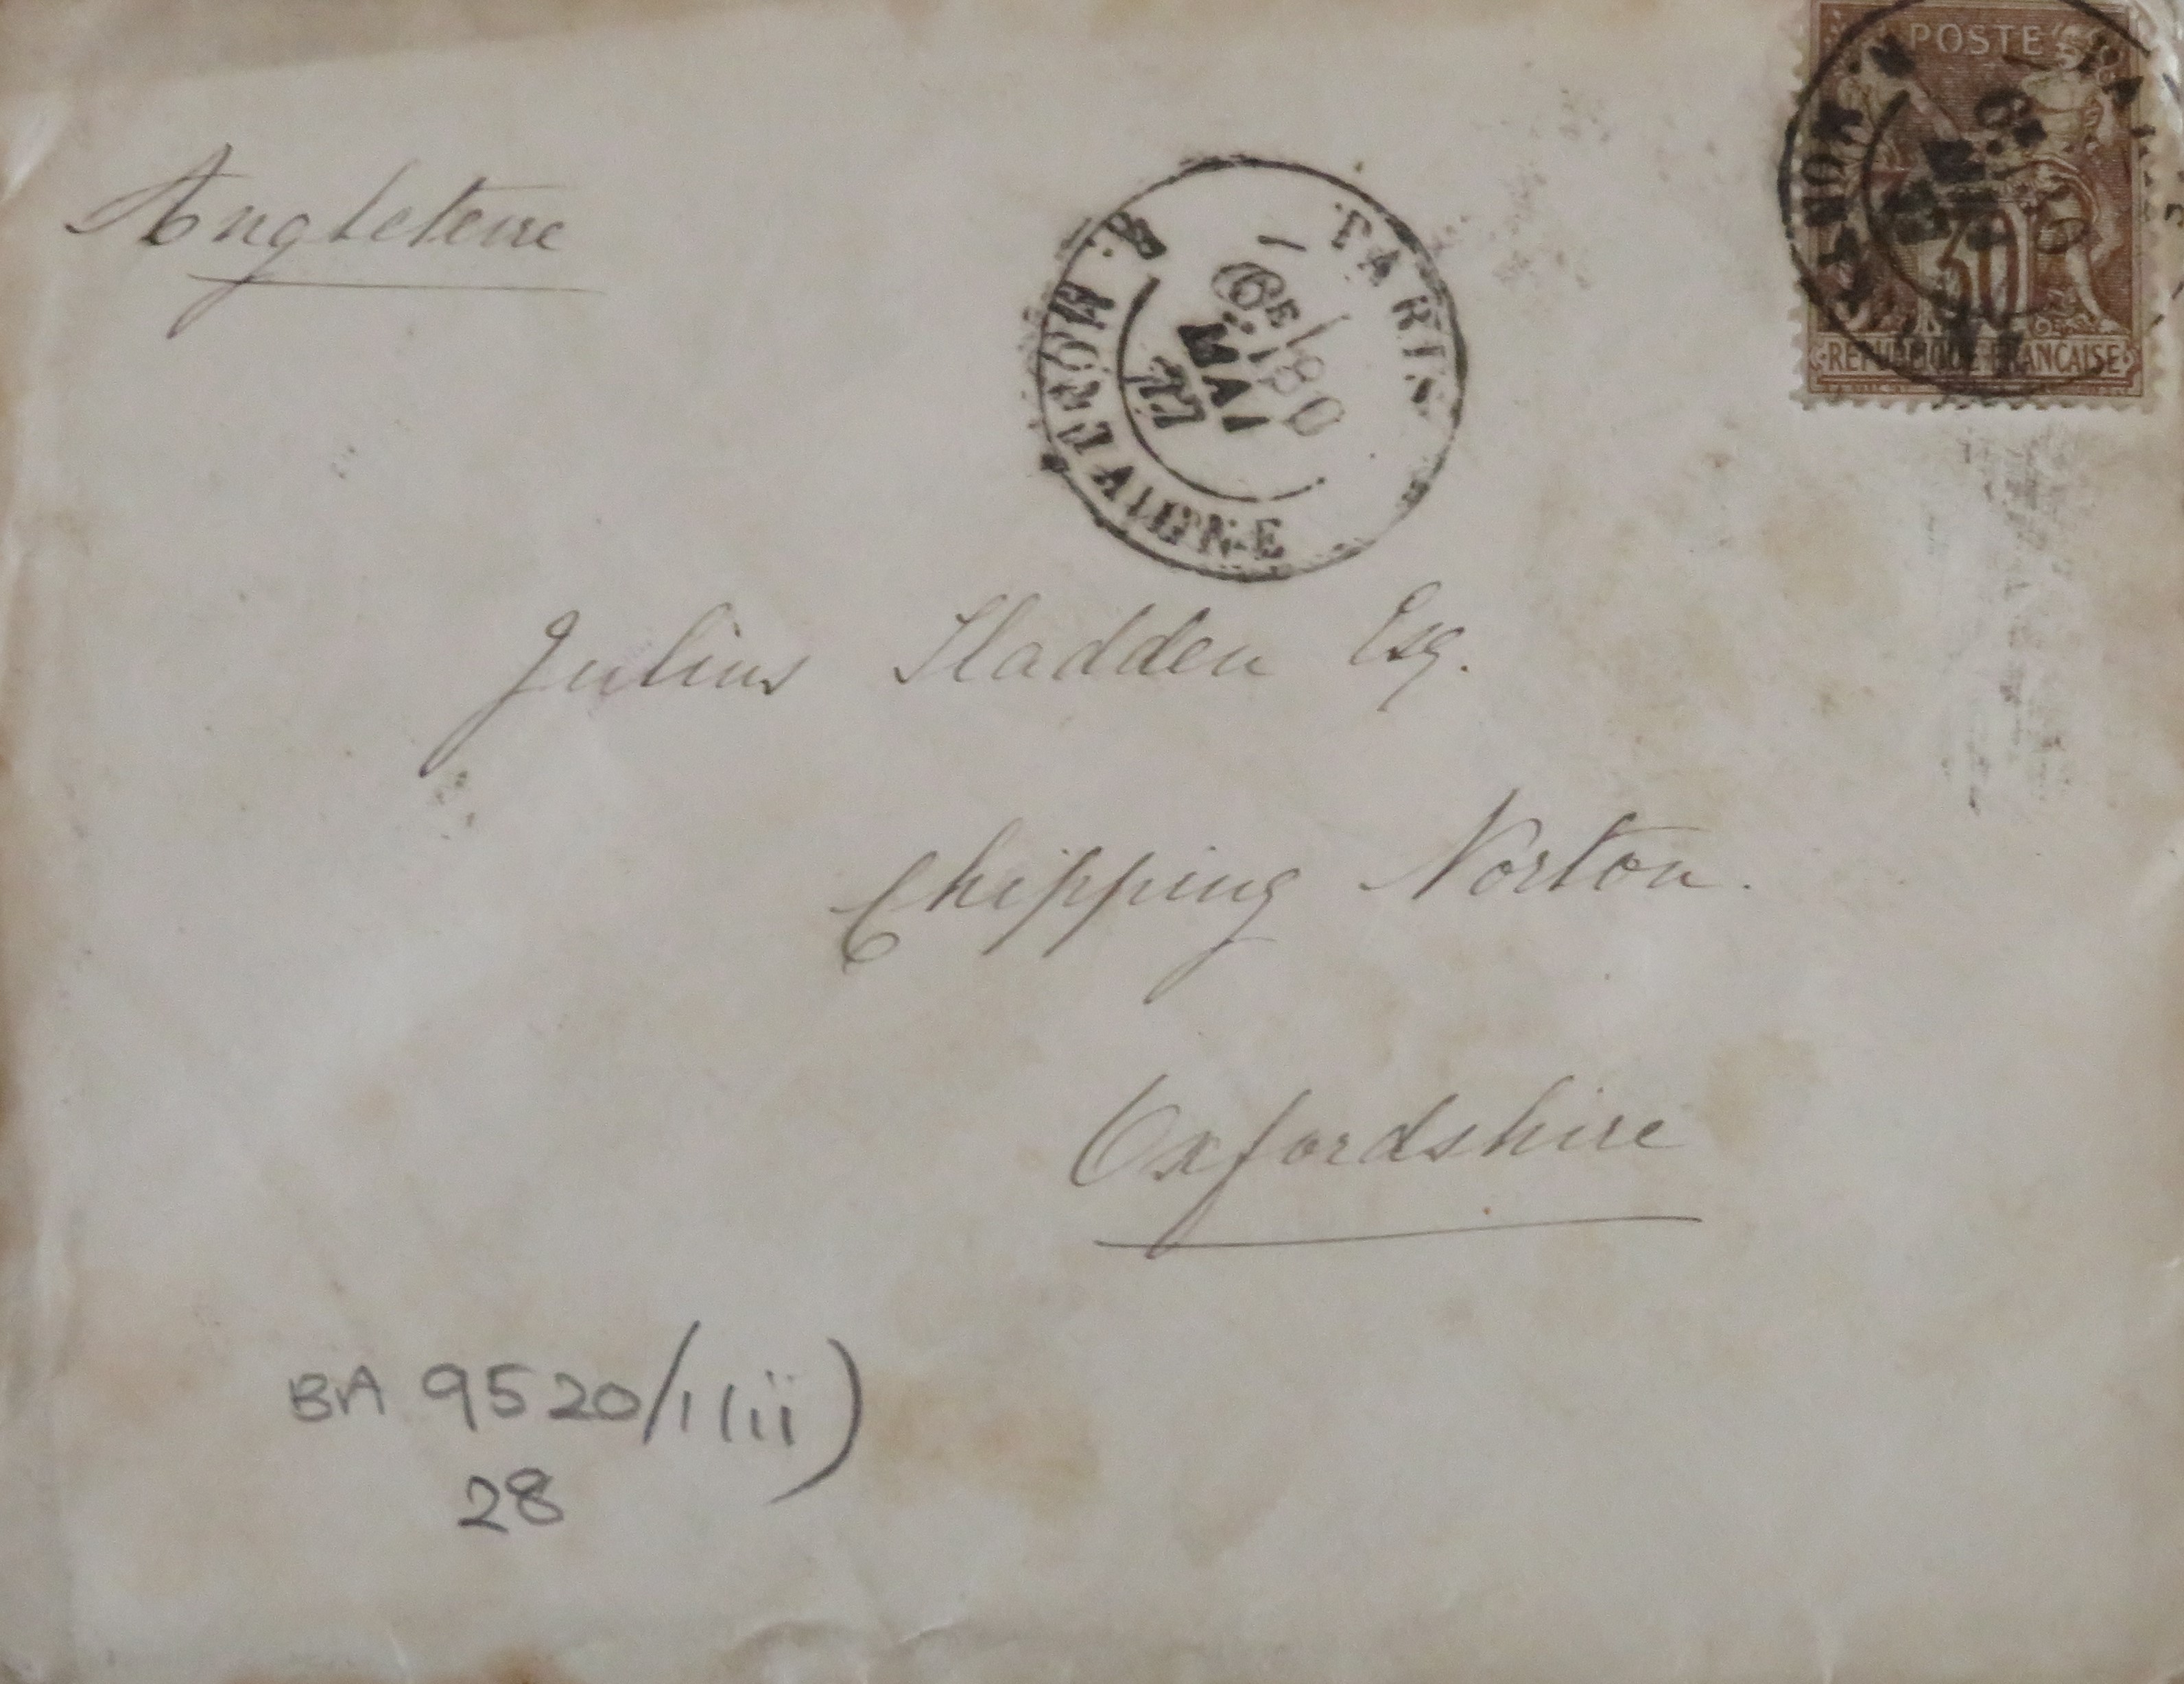 POSTE
30
REPUBLIQUE FRANCAISE
Angleterre
PARIS
R. MONTAIGNE
6E
MAI
Julius Sladden Esq.
Chipping Norton.
Oxfordshire
BA 9520/1(ii)
28